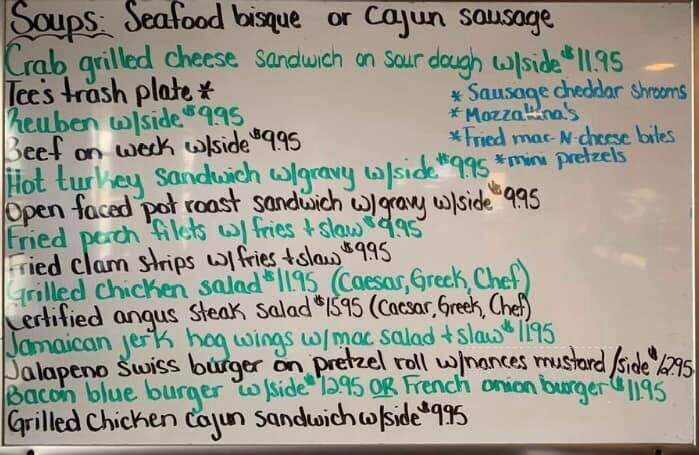 Soups: Seafood bisque or Cajun sausage
Crab grilled cheese sandwich on sour dough w/side $11.95
Tee's trash plate *
* Sausage cheddar shrooms
Reuben w/side $9.95
* Mozzarina's
Beef on weck w/side $9.95
* Fried mac-N-cheese bites
Hot turkey sandwich w/gravy w/side $9.95
* mini pretzels
Open faced pot roast sandwich w/gravy w/side $9.95
Fried perch filets w/ fries + slaw $9.95
Fried clam strips w/ fries + slaw $9.95
Grilled chicken salad $11.95 (Caesar, Greek, Chef)
Certified angus steak salad $15.95 (Caesar, Greek, Chef)
Jamaican jerk hog wings w/mac salad + slaw $11.95
Jalapeno swiss burger on pretzel roll w/nances mustard /side $12.95
Bacon blue burger w/side $12.95 OR French onion burger $11.95
Grilled Chicken Cajun sandwich w/side $9.95